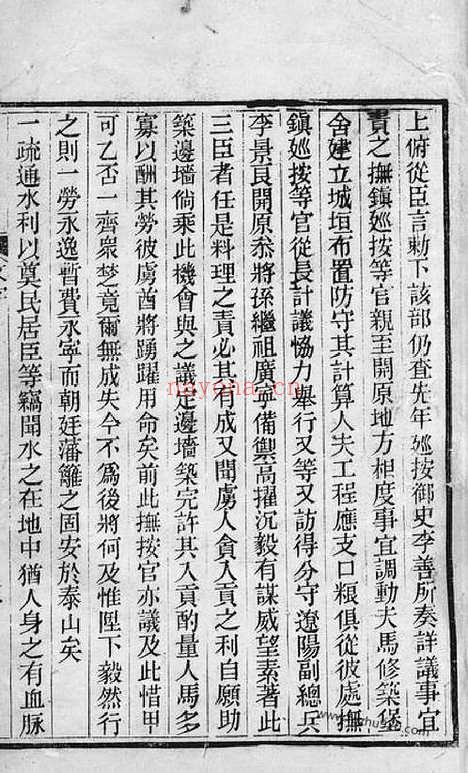 上俯從臣言勅下該部仍查先年廵按御史李善所奏詳議事宜
責之撫鎮廵按等官親至開原地方相度事宜調動夫馬修築堡
舍建立城垣布置防守其計算人夫工程應支口粮俱從彼處撫
鎮廵按等官從長計議恊力舉行又等又訪得分守遼陽副總兵
李景良開原叅將孫繼祖廣寧備禦高擢沉毅有謀威望素著此
三臣者任是料理之責必其有成又聞虜人貪入貢之利自願助
築邊墻倘乘此機會與之議定邊墻築完許其入貢酌量人馬多
寡以酬其勞彼虜酋將踴躍用命矣前此撫按官亦議及此惜甲
可乙否一齊衆楚竟爾無成失今不爲後將何及惟陞下毅然行
之則一勞永逸暫費永寧而朝廷藩籬之固安於泰山矣
一疏通水利以奠民居臣等竊聞水之在地中猶人身之有血脉
nayona.cn